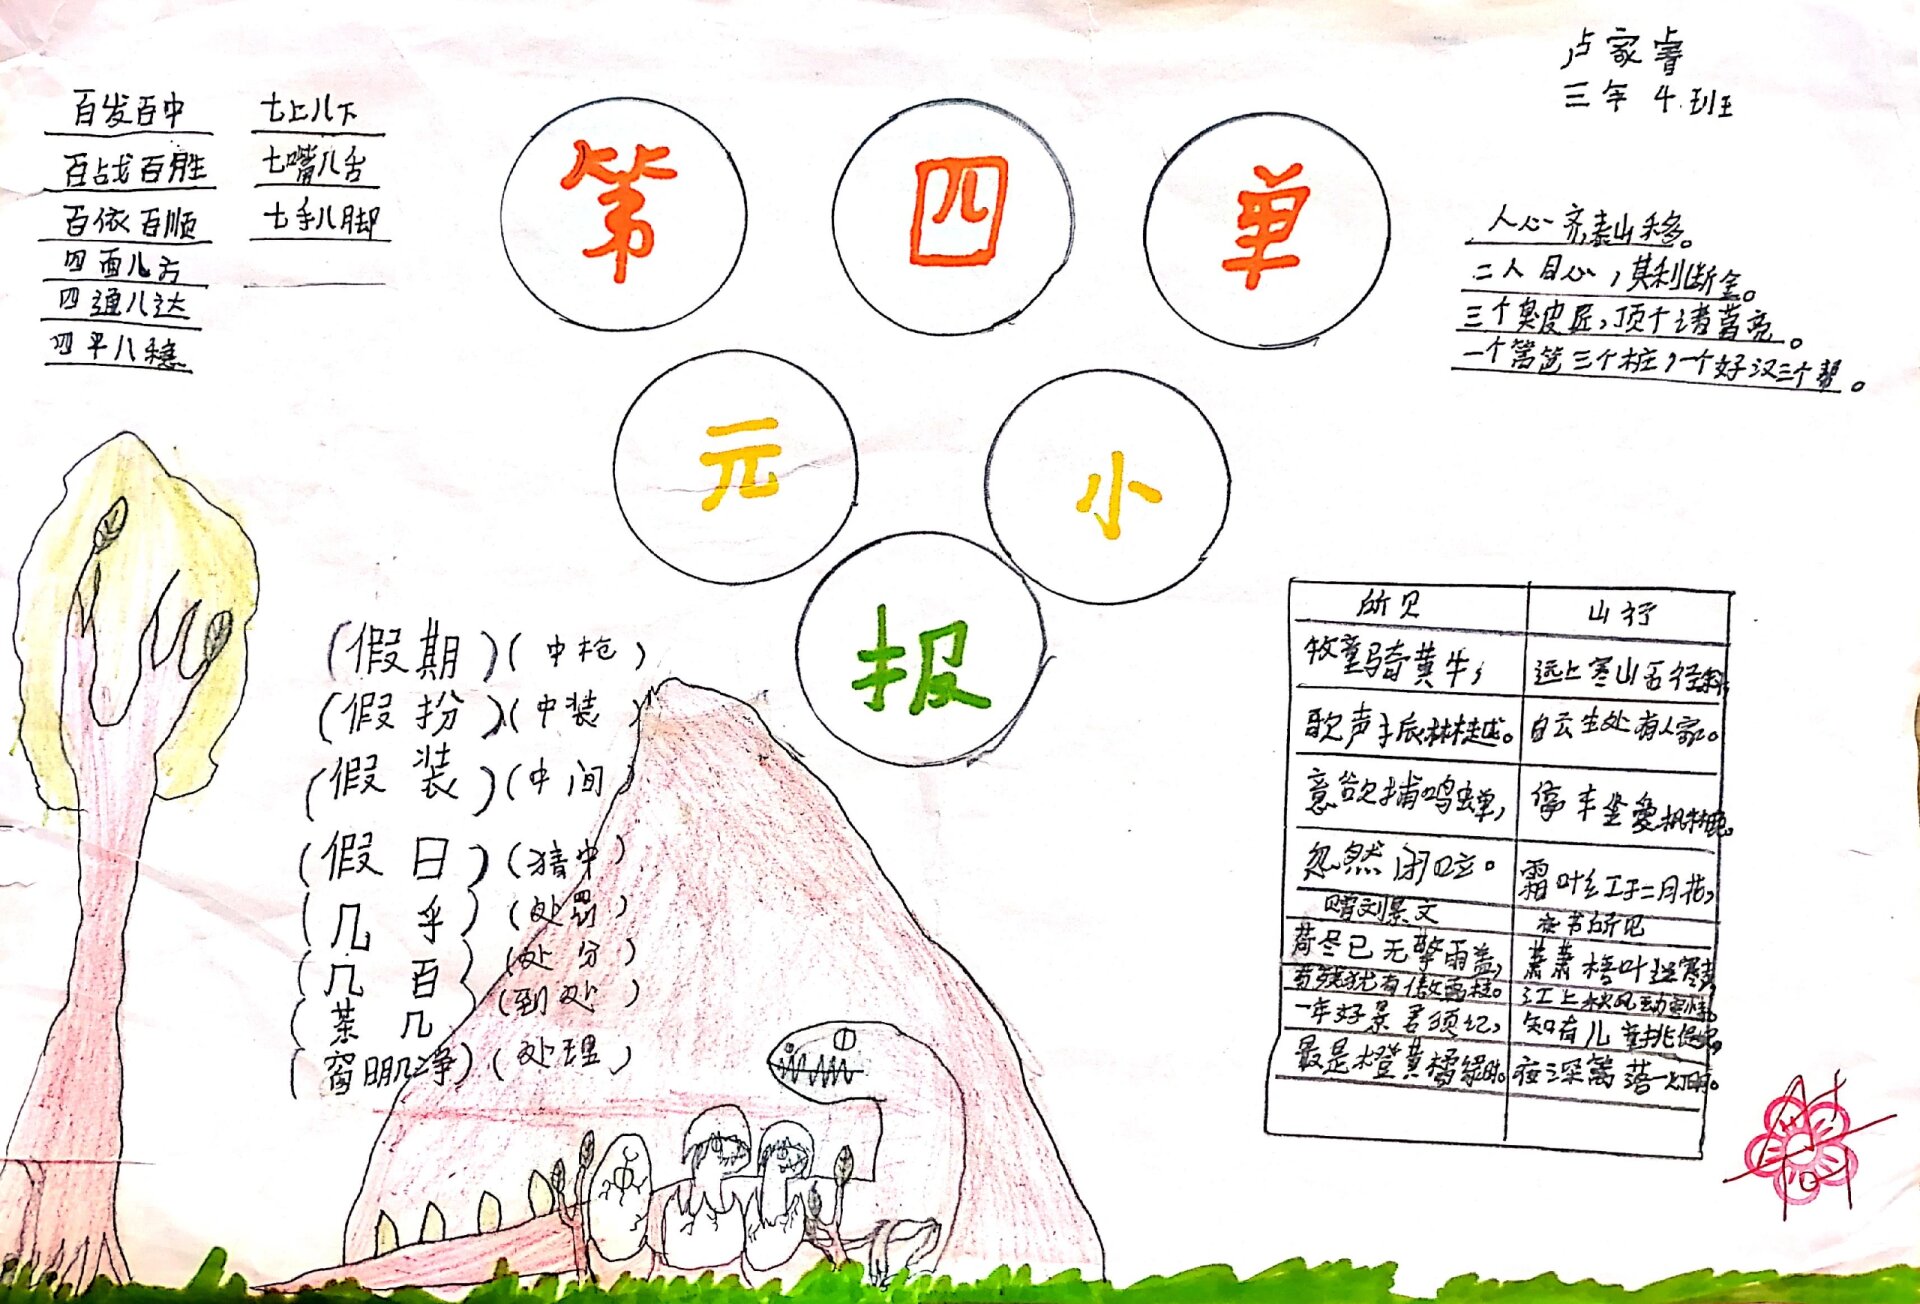 卢家睿
三年 4.班
第四单
元小
报
百发百中
百战百胜
百依百顺
四面八方
四通八达
四平八稳
七上八下
七嘴八舌
七手八脚
人心齐泰山移。
二人同心,其利断金。
三个臭皮匠,顶个诸葛亮。
一个篱笆三个桩,一个好汉三个帮。
(假期)(中枪)
(假扮)(中装)
(假装)(中间)
(假日)(猜中)
(几乎)(处罚)
(几百)(处分)
(茶几)(到处)
(窗明几净)(处理)
所见 山行
牧童骑黄牛, 远上寒山石径斜,
歌声振林樾。 白云生处有人家。
意欲捕鸣蝉, 停车坐爱枫林晚。
忽然闭口立。 霜叶红于二月花,
赠刘景文 夜书所见
荷尽已无擎雨盖, 萧萧梧叶送寒声,
菊残犹有傲霜枝。 江上秋风动客情。
一年好景君须记, 知有儿童挑促织,
最是橙黄橘绿时。 夜深篱落一灯明。